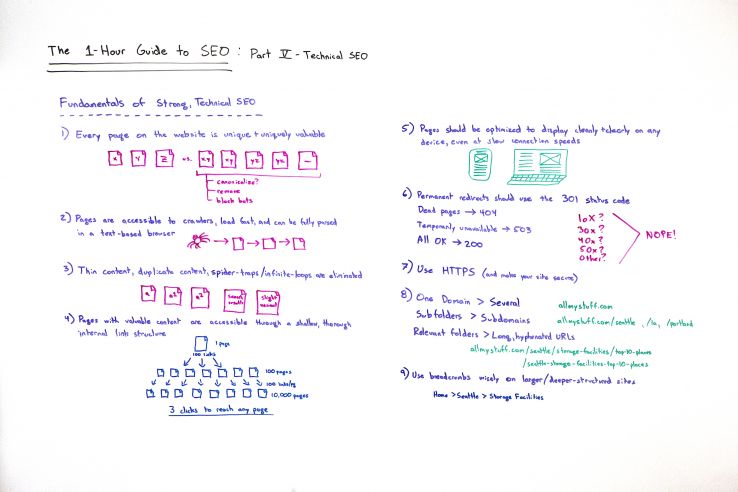 The 1-Hour Guide to SEO: Part V - Technical SEO
Fundamentals of Strong, Technical SEO
1) Every page on the website is unique + uniquely valuable
X Y Z vs.
canonicalize?
remove
block bots
2) Pages are accessible to crawlers, load fast, and can be fully parsed
in a text-based browser
3) Thin content, duplicate content, spider-traps/infinite-loops are eliminated
search results
slight variant
4) Pages with valuable content are accessible through a shallow, thorough
internal link structure
1 page
100 links
100 pages
100 links/pg
10,000 pages
3 clicks to reach any page
5) Pages should be optimized to display cleanly + clearly on any
device, even at slow connection speeds
6) Permanent redirects should use the 301 status code
Dead pages → 404
Temporarily unavailable → 503
All OK → 200
10x?
30x?
40x?
50x?
Other?
NOPE!
7) Use HTTPS (and make your site secure)
8) One Domain > Several allmystuff.com
Subfolders > Subdomains allmystuff.com/seattle, /la, /portland
Relevant folders > Long, hyphenated URLs
allmystuff.com/seattle/storage-facilities/top-10-places
/seattle-storage-facilities-top-10-places
9) Use breadcrumbs wisely on larger/deeper-structured sites
Home > Seattle > Storage Facilities